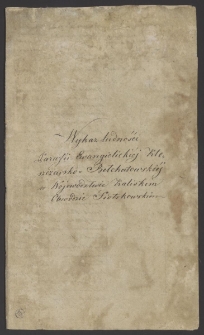 Wykaz ludności
Parafii Ewangelickiéj Kle,
szczowsko - Bełchatowskiéj
w Województwie Kaliskim
Obwodzie Piotrkowskim